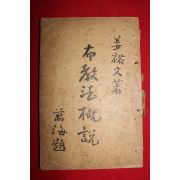 姜裕文著
布教法槪説
萬海題